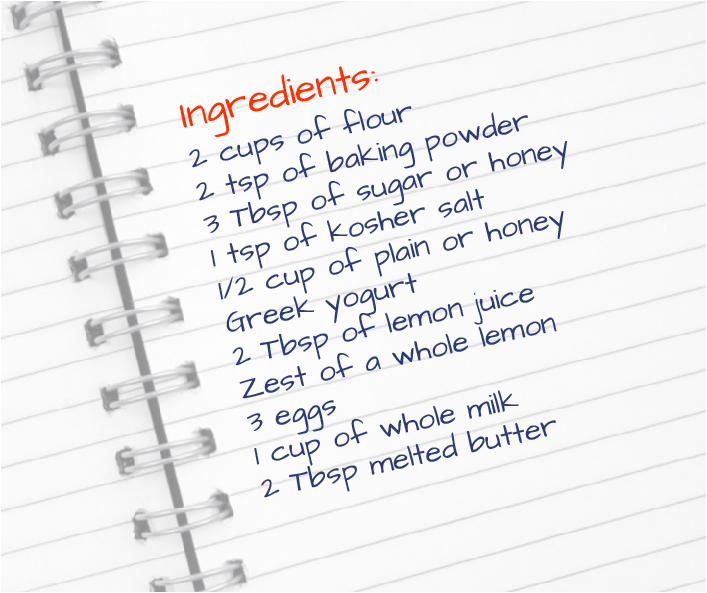 Ingredients:
2 cups of flour
2 tsp of baking powder
3 Tbsp of sugar or honey
1 tsp of kosher salt
1/2 cup of plain or honey
Greek yogurt
2 Tbsp of lemon juice
Zest of a whole lemon
3 eggs
1 cup of whole milk
2 Tbsp melted butter